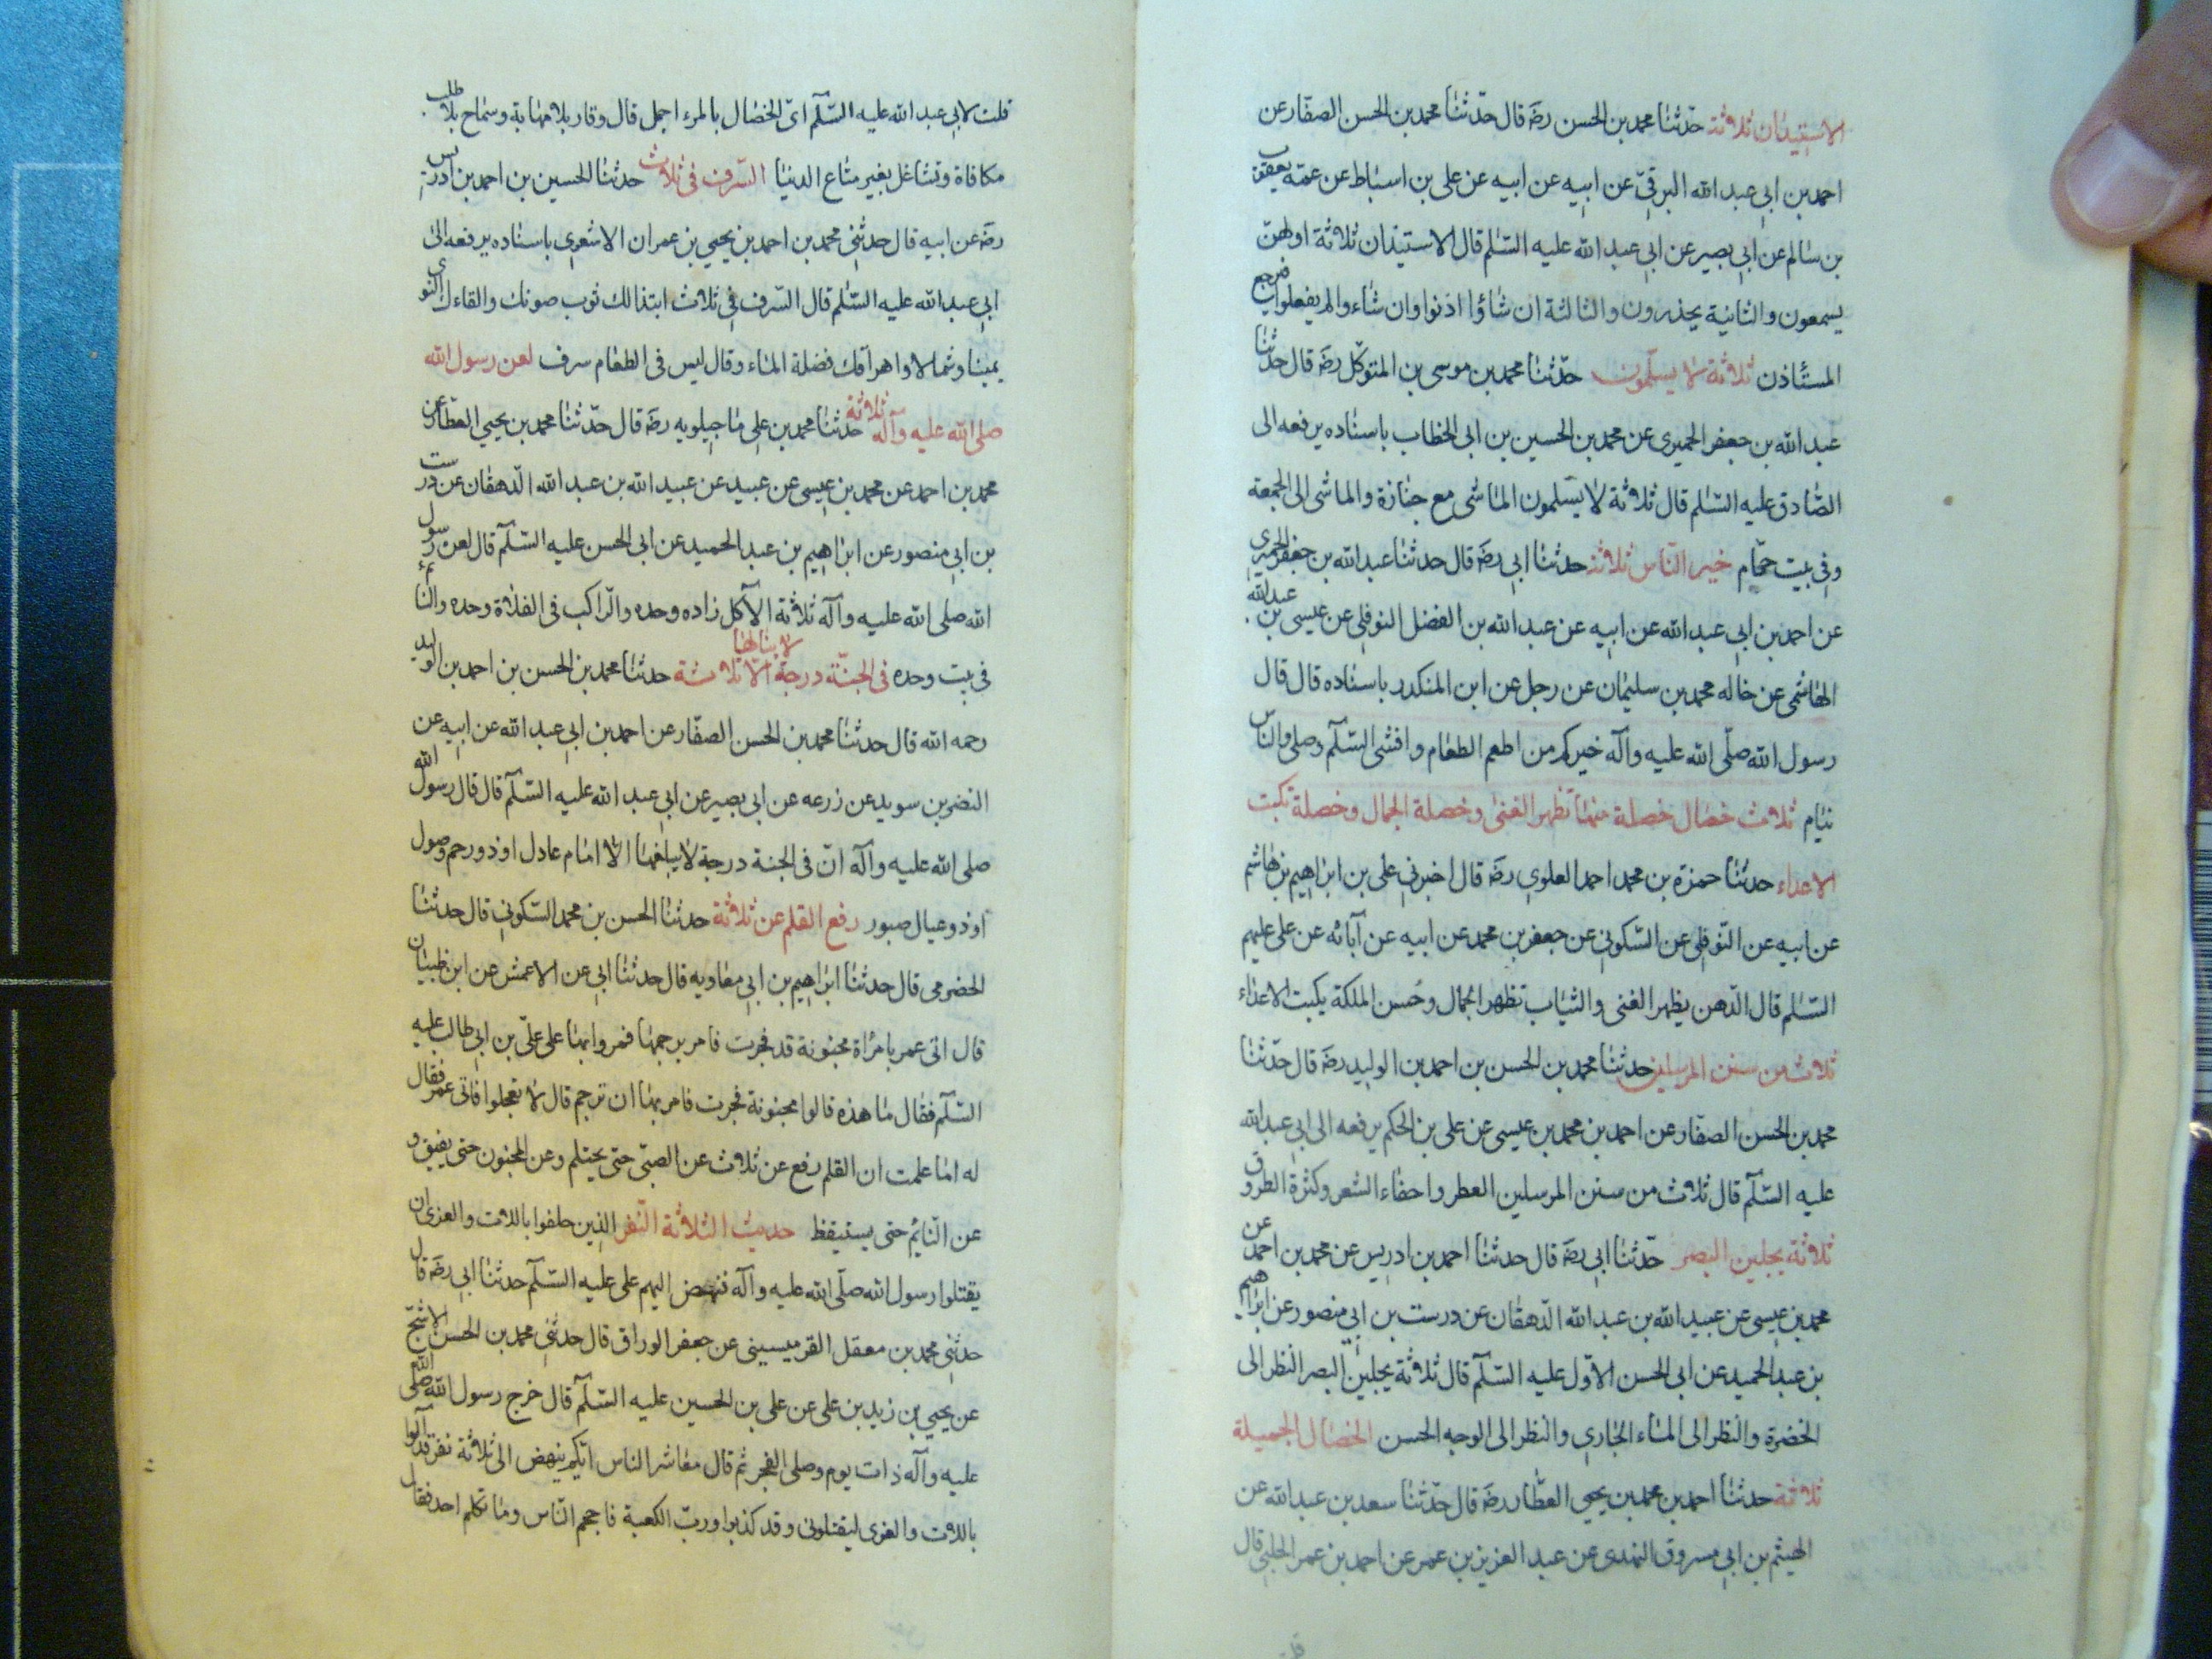 الاستيذان ثلاثة حدّثنا محمد بن الحسن رضه قال حدّثنا محمد بن الحسن الصفّار عن
احمد بن ابي عبد الله البرقيّ عن ابيه عن ابيه عن على بن اسباط عن عمه يعقوب
بن سالم عن ابي بصير عن ابي عبد الله عليه السّلم قال الاستيذان ثلاثة اولهنّ
يسمعون والثانية يحذرون والثالثة ان شاؤا اذنوا وان شاء والم يفعلوا فيرجع
المستأذن ثلاثة لا يسلّمون حدّثنا محمد بن موسى بن المتوكّل رضه قال حدّثنا
عبد الله بن جعفر الحميرى عن محمد بن الحسين بن ابى الخطاب باسناده يرفعه الى
الصّادق عليه السّلم قال ثلاثة لا يسّلمون الماشى مع جنازة والماشى الى الجمعة
وفى بيت حمّام خير النّاس ثلاثة حدثنا ابى رضه قال حدثنا عبد الله بن جعفر الحميرى
عن احمد بن ابي عبد الله عن ابيه عن عبد الله بن الفضل النوفلى عن عيسى بن عبد الله
الهاشمى عن خاله محمد بن سليمان عن رجل عن ابن المنكدر باسناده قال قال
رسول الله صلّى الله عليه وآله خيركم من اطعم الطعام وافشى السّلم وصلى والناس
نيام ثلاث خصال خصلة منها تظهر الغنى وخصلة الجمال وخصلة تكبت
الاعداء حدثنا حمزة بن محمد احمد العلوى رضه قال اخبرنى على بن ابراهيم بن هاشم
عن ابيه عن النّوفلى عن السّكونى عن جعفر بن محمد عن ابيه عن آبائه عن على عليهم
السّلم قال الدّهن يظهر الغنى والثياب تظهر الجمال وحُسن الملكة يكبت الاعداء
ثلاث من سنن المرسلين حدثنا محمد بن الحسن بن احمد بن الوليد رضه قال حدّثنا
محمد بن الحسن الصفّار عن احمد بن محمد بن عيسى عن على بن الحكم يرفعه الى ابى عبد الله
عليه السّلم قال ثلاث من سنن المرسلين العطر واحفاء الشعر وكثرة الطروق
ثلاثة يجلين البصر حدّثنا ابى رضه قال حدثنا احمد بن ادريس عن محمد بن احمد عن
محمد بن عيسى عن عبيد الله بن عبد الله الدّهقان عن درست بن ابى منصور عن ابراهيم
بن عبد الحميد عن ابى الحسن الاوّل عليه السّلم قال ثلاثة يجلين البصر النظر الى
الخضرة والنظر الى الماء الجارى والنظر الى الوجه الحسن الخصال الجميلة
ثلاثة حدثنا احمد بن محمد بن يحيى العطّار رضه قال حدّثنا سعد بن عبد الله عن
الهيثم بن ابي مسروق النهدى عن عبد العزيز بن عمر عن احمد بن عمر الحلبي قال
قلت لابي عبد الله عليه السّلم اىّ الخصال بالمرء اجمل قال وقار بلا مهابة وسماح بلا طلب
مكافاة وتشاغل بغير متاع الدنيا السّرف فى ثلاث حدثنا الحسين بن احمد بن ادريس
رضه عن ابيه قال حدثنى محمد بن احمد بن يحيى بن عمران الاشعرى باسناده يرفعه الى
ابي عبد الله عليه السّلم قال السّرف فى ثلاث ابتذالك ثوب صونك والقاءك النوى
يمينا وشمالا واهراقك فضلة الماء وقال ليس فى الطعام سرف لعن رسول الله
صلى الله عليه وآله ثلاثة حدثنا محمد بن على ماجيلويه رضه قال حدّثنا محمد بن يحيى العطّار عن
محمد بن احمد عن محمد بن عيسى عن عبيد عن عبيد الله بن عبد الله الدّهقان عن درست
بن ابى منصور عن ابراهيم بن عبد الحميد عن ابى الحسن عليه السّلم قال لعن رسول
الله صلى الله عليه وآله ثلاثة الآكل زاده وحده والرّاكب فى الفلاة وحده والنائم
فى بيت وحده فى الجنّة درجة لا ينالها الّا ثلاثة حدثنا محمد بن الحسن بن احمد بن الوليد
رحمه الله قال حدثنا محمد بن الحسن الصفّار عن احمد بن ابى عبد الله عن ابيه عن
النضر بن سويد عن زرعه عن ابى بصير عن ابى عبد الله عليه السّلم قال قال رسول الله
صلى الله عليه وآله انّ فى الجنة درجة لا يبلغها الّا امام عادل او ذو رحم وصول
او ذو عيال صبور رفع القلم عن ثلاثة حدثنا الحسن بن محمد السّكونى قال حدثنا
الحضرمى قال حدثنا ابراهيم بن ابى معاويه قال حدثنا ابى عن الاعمش عن ابن ظبيان
قال اتى عمر بامرأة مجنونة قد فجرت فامر برجمها فمروا بها على علىّ بن ابى طالب عليه
السّلم فقال ما هذه قالوا مجنونة فجرت فامر بها ان ترجم قال لا تعجلوا فاتى عمر فقال
له اما علمت ان القلم رفع عن ثلاث عن الصبىّ حتى يحتلم وعن المجنون حتى يفيق و
عن النّائم حتى يستيقظ حديث الثلاثة النّفر الذين حلفوا باللات والعزى ان
يقتلوا رسول الله صلّى الله عليه وآله فنهض اليهم على عليه السّلم حدثنا ابى رضه قال
حدثنى محمد بن معقل القرميسينى عن جعفر الوراق قال حدثنى محمد بن الحسن الاشجّ
عن يحيى بن زيد بن على عن على بن الحسين عليه السّلم قال خرج رسول الله صلى الله
عليه وآله ذات يوم وصلى الفجر ثم قال معاشر الناس ايّكم ينهض الى ثلاثة نفر قد آلوا
باللات والعزى ليقتلونى وقد كذبوا وربّ الكعبة فاحجم النّاس وما تكلم احد فقال